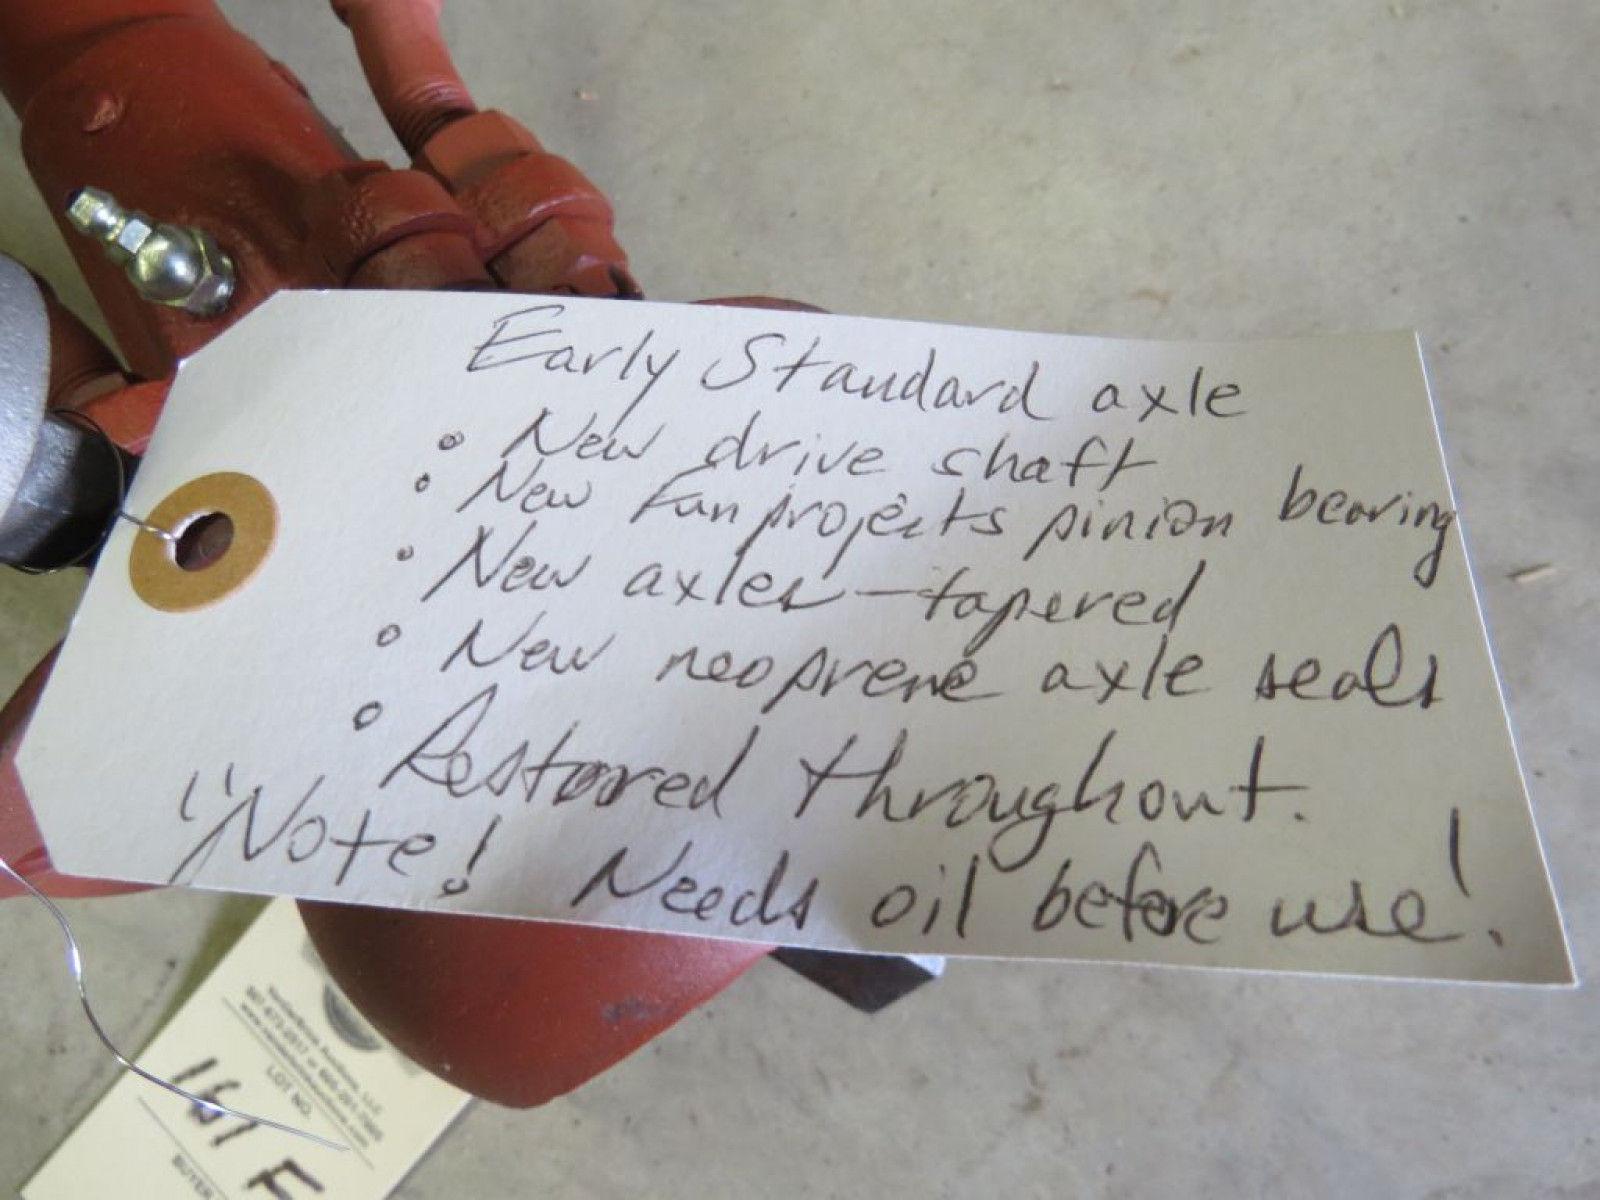 Early Standard axle
• New drive shaft
• New Fun projects pinion bearing
• New axles - tapered
• New neoprene axle seals
• Restored throughout.
"Note! Needs oil before use!
LLC
LOT NO.
161 F
BUYER